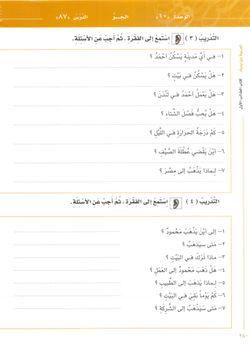 الوحدة «١٥» الجو الدرس «٨٧»
التدريب ( ٣ ) استمع إلى الفقرة، ثم أجب عن الأسئلة.
١- في أي مدينة يسكن أحمد ؟
٢- هل يسكن في بيت ؟
٣- هل يعمل أحمد في لندن ؟
٤- هل يحب فصل الشتاء ؟
٥- كم درجة الحرارة في الليل ؟
٦- أين يقضي عطلة الصيف ؟
٧- لماذا يذهب إلى مصر ؟
التدريب ( ٤ ) استمع إلى الفقرة، ثم أجب عن الأسئلة.
١- إلى أين يذهب محمود ؟
٢- متى سيذهب ؟
٣- ماذا ترك في البيت ؟
٤- هل ذهب محمود إلى العمل ؟
٥- لماذا يذهب إلى الطبيب ؟
٦- كم يوما بقي في البيت ؟
٧- متى سيذهب إلى الشركة ؟